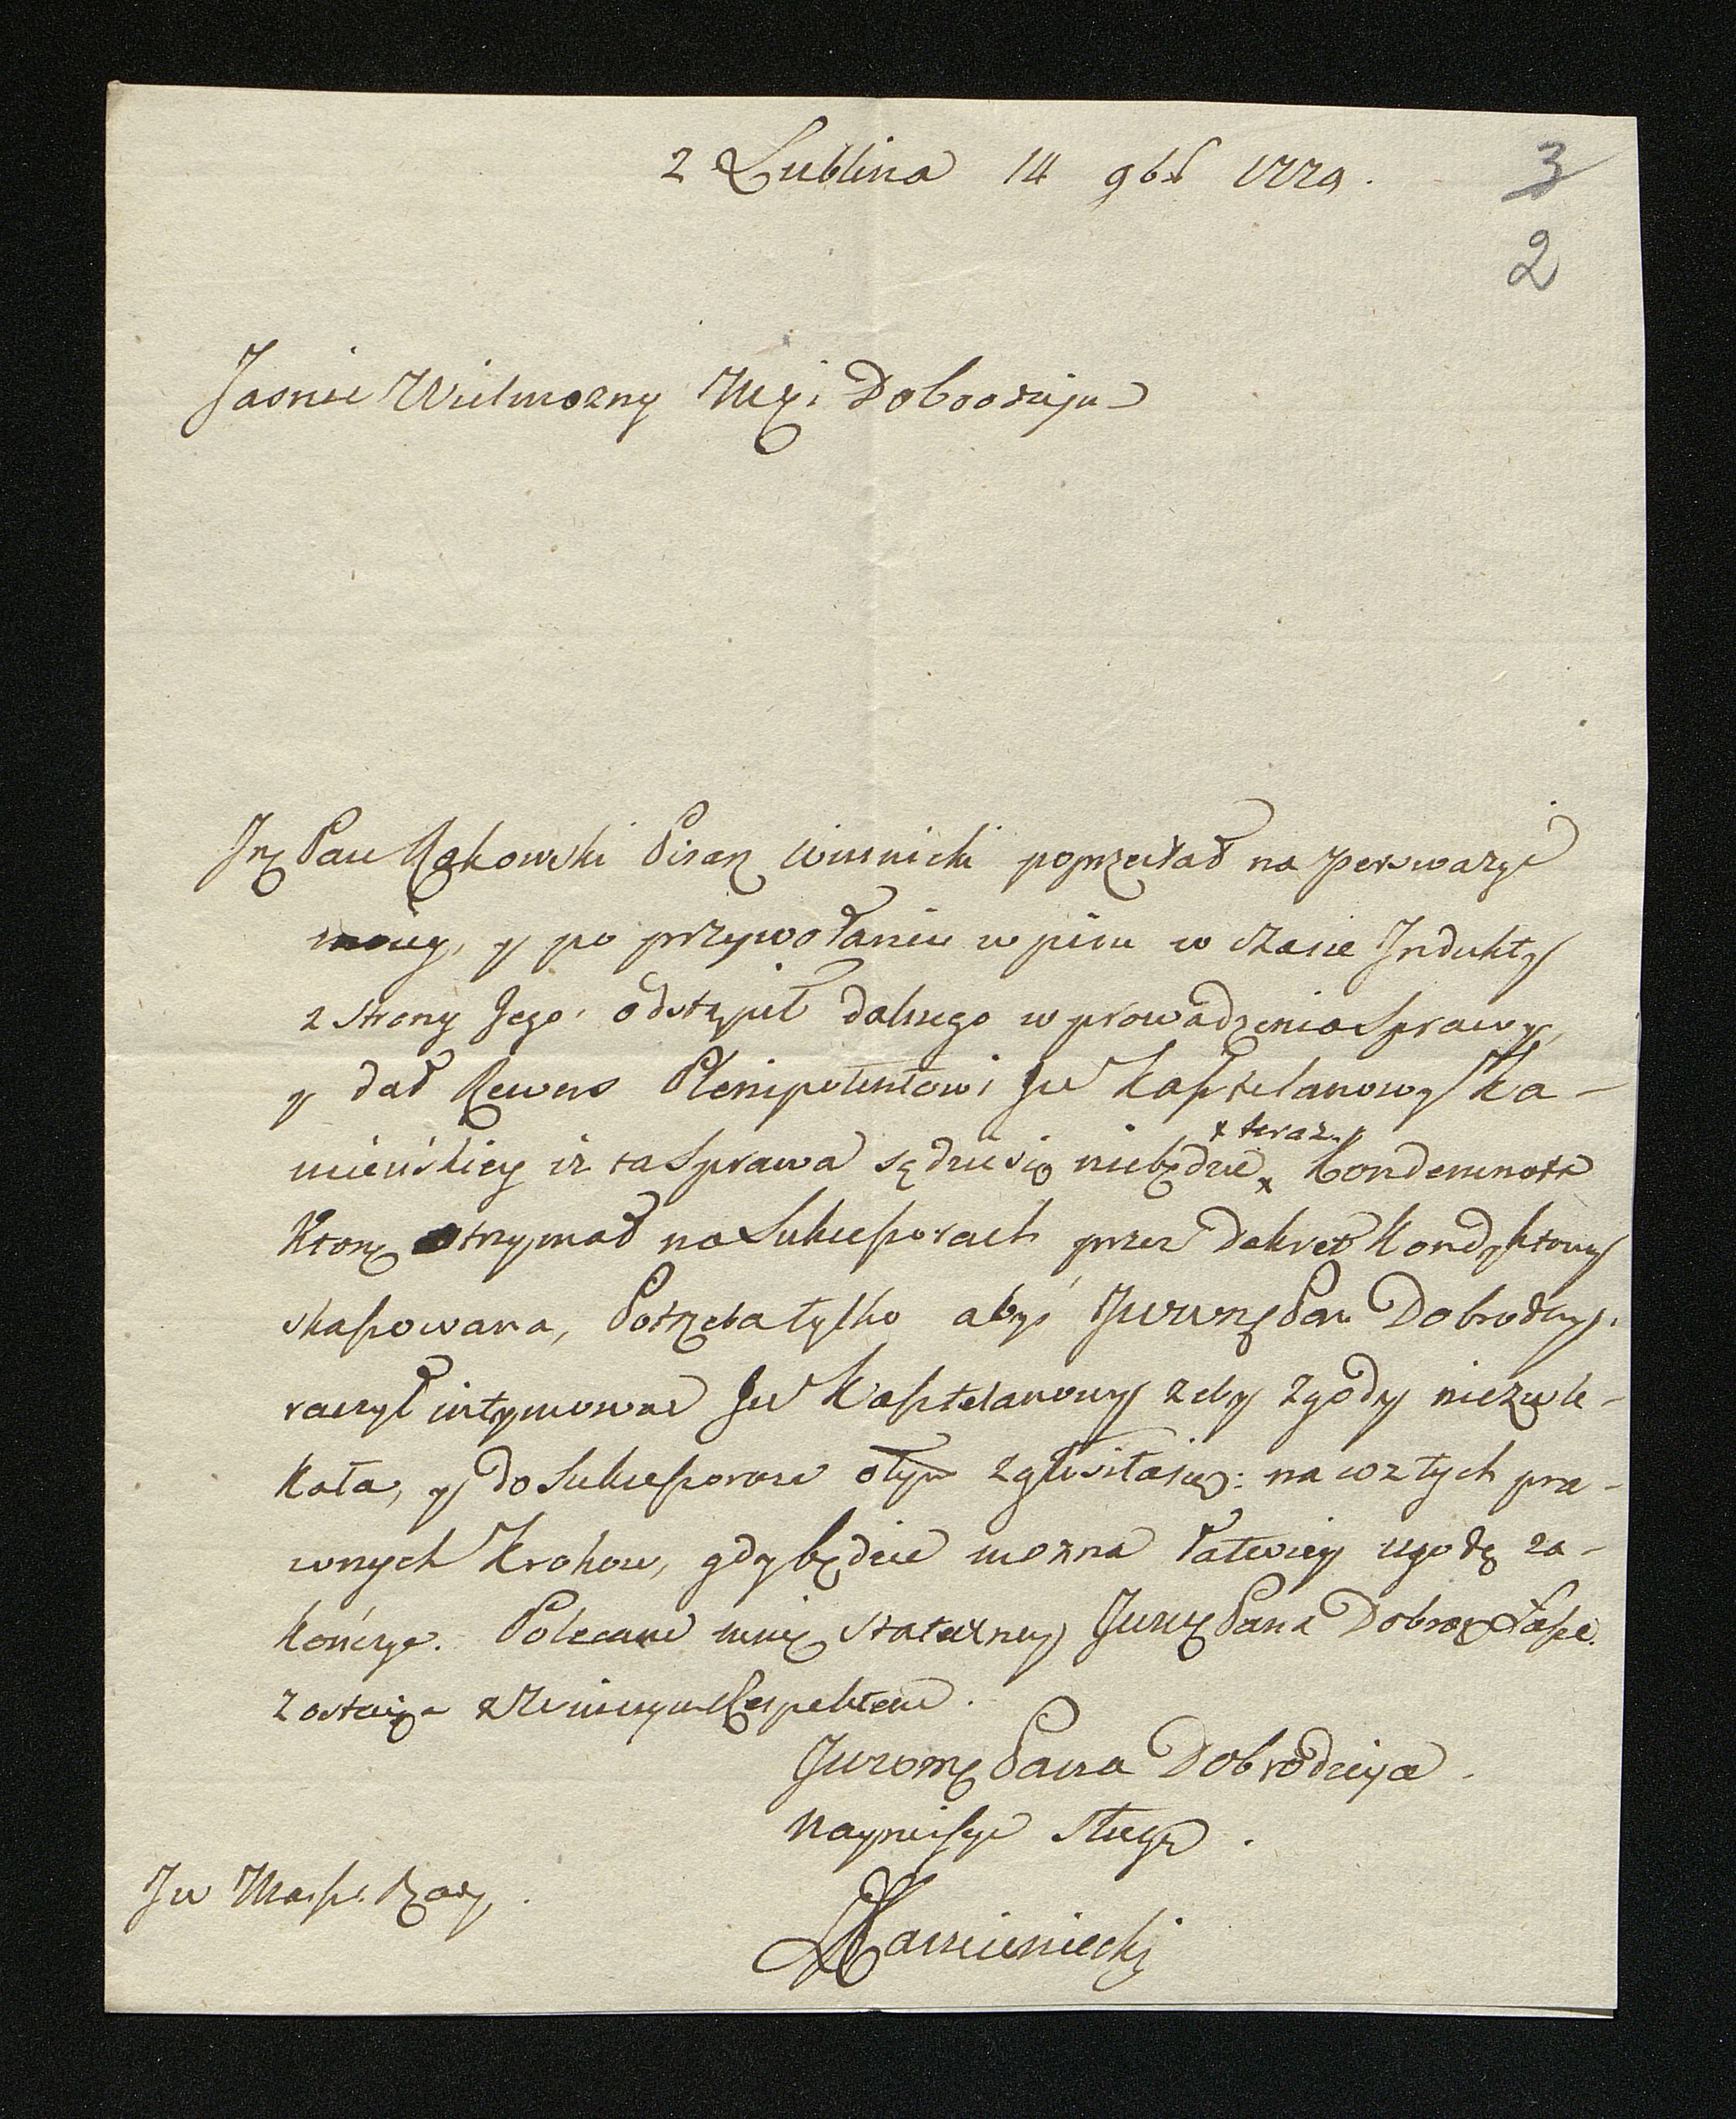 z Lublina 14 9bs 1779.
3
2
Jasnie Wielmozny Mci Dobrodzieju
Jmć Pan Rąkowski Pisarz Winnicki poprzestał na perswazyi
moiey, y po przywołaniu wpisu w czasie Jndukty
z strony Jego odstąpił dalszego wprowadzenia Sprawy,
y dał Rewers Plenipotentowi Jw Kasztelanowy Ka-
mieńskiey iz ta Sprawa sądzić się niebędzie x Kondemnata
x teraz
Ktorą otrzymał na Sukcessorach przez Dekret Kondyktowy
skassowana, Potrzeba tylko abyś Jwwmć Pan Dobrodziey
raczył intymować Jw Kasztelanowy zeby zgody niezwle-
kała, y do Sukcessorow otym zgłosiła się: na wztych pra-
wnych Krokow, gdy będzie mozna łatwiey ugodę za-
kończyć. Polecam mnie stateczney Jwwmć Pana Dobrodz Łasce.
zostaię z Winnym Respektem.
Jwwmć Pana Dobrodzieja.
Nayniższy Sługa.
Kamieniecki
Jw